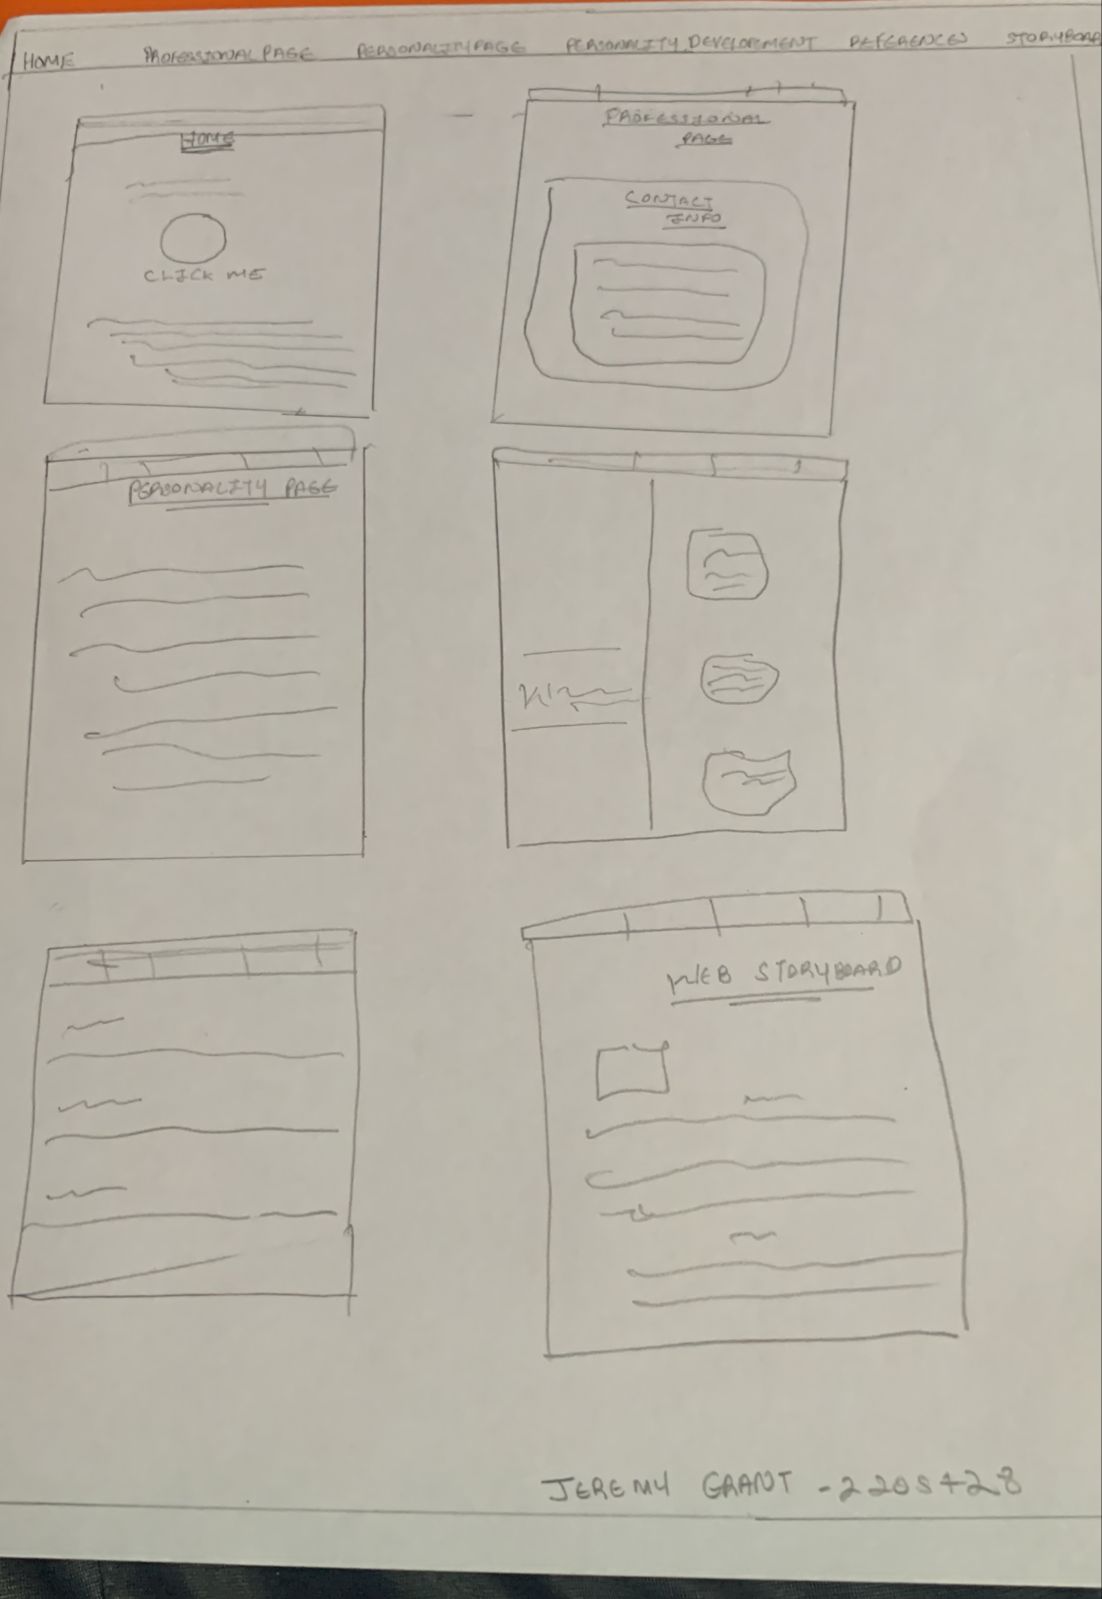 HOME PROFESSIONAL PAGE PERSONALITY PAGE PERSONALITY DEVELOPMENT REFERENCES STORYBOAR
HOME
CLICK ME
PROFESSIONAL
PAGE
CONTACT
INFO
PERSONALITY PAGE
WEB STORYBOARD
JEREMY GRANT -